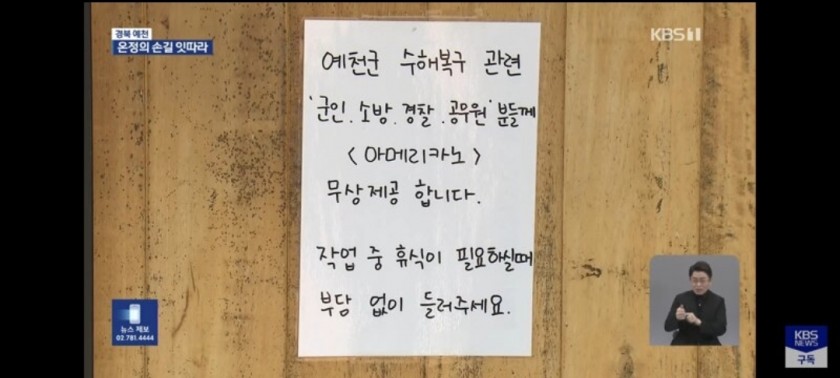 경북 예천
온정의 손길 잇따라
KBS 1
예천군 수해복구 관련
'군인.소방.경찰.공무원' 분들께
<아메리카노>
무상제공 합니다.
작업 중 휴식이 필요하실때
부담 없이 들러주세요.
뉴스 제보
02.781.4444
KBS
NEWS
구독